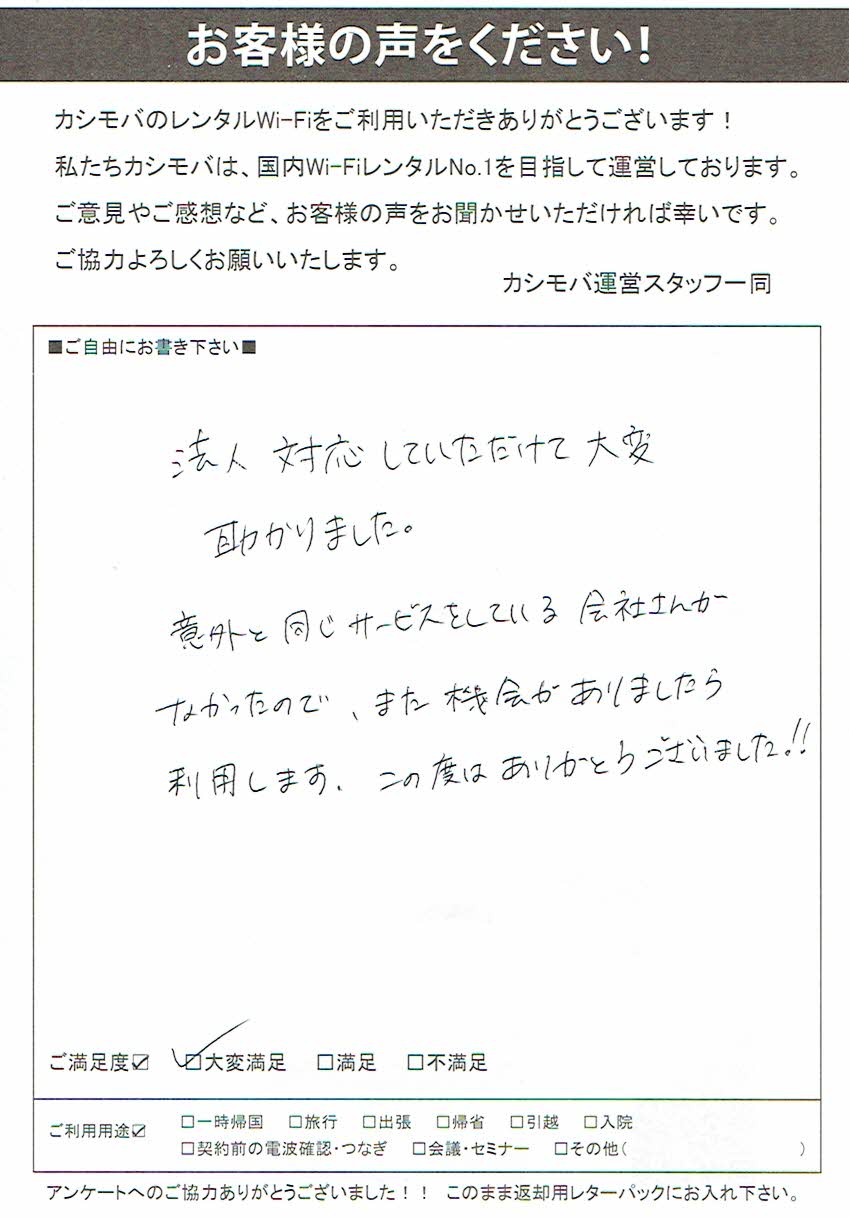 お客様の声をください！
カシモバのレンタルWi-Fiをご利用いただきありがとうございます！
私たちカシモバは、国内Wi-FiレンタルNo.1を目指して運営しております。
ご意見やご感想など、お客様の声をお聞かせいただければ幸いです。
ご協力よろしくお願いいたします。
カシモバ運営スタッフ一同
■ご自由にお書き下さい■
法人対応していただけて大変
助かりました。
意外と同じサービスをしている会社さんが
なかったので、また機会がありましたら
利用します。この度はありがとうございました!!
ご満足度☑ ☑大変満足 □満足 □不満足
ご利用用途☑ □一時帰国 □旅行 □出張 □帰省 □引越 □入院
□契約前の電波確認・つなぎ □会議・セミナー □その他( )
アンケートへのご協力ありがとうございました！！ このまま返却用レターパックにお入れ下さい。